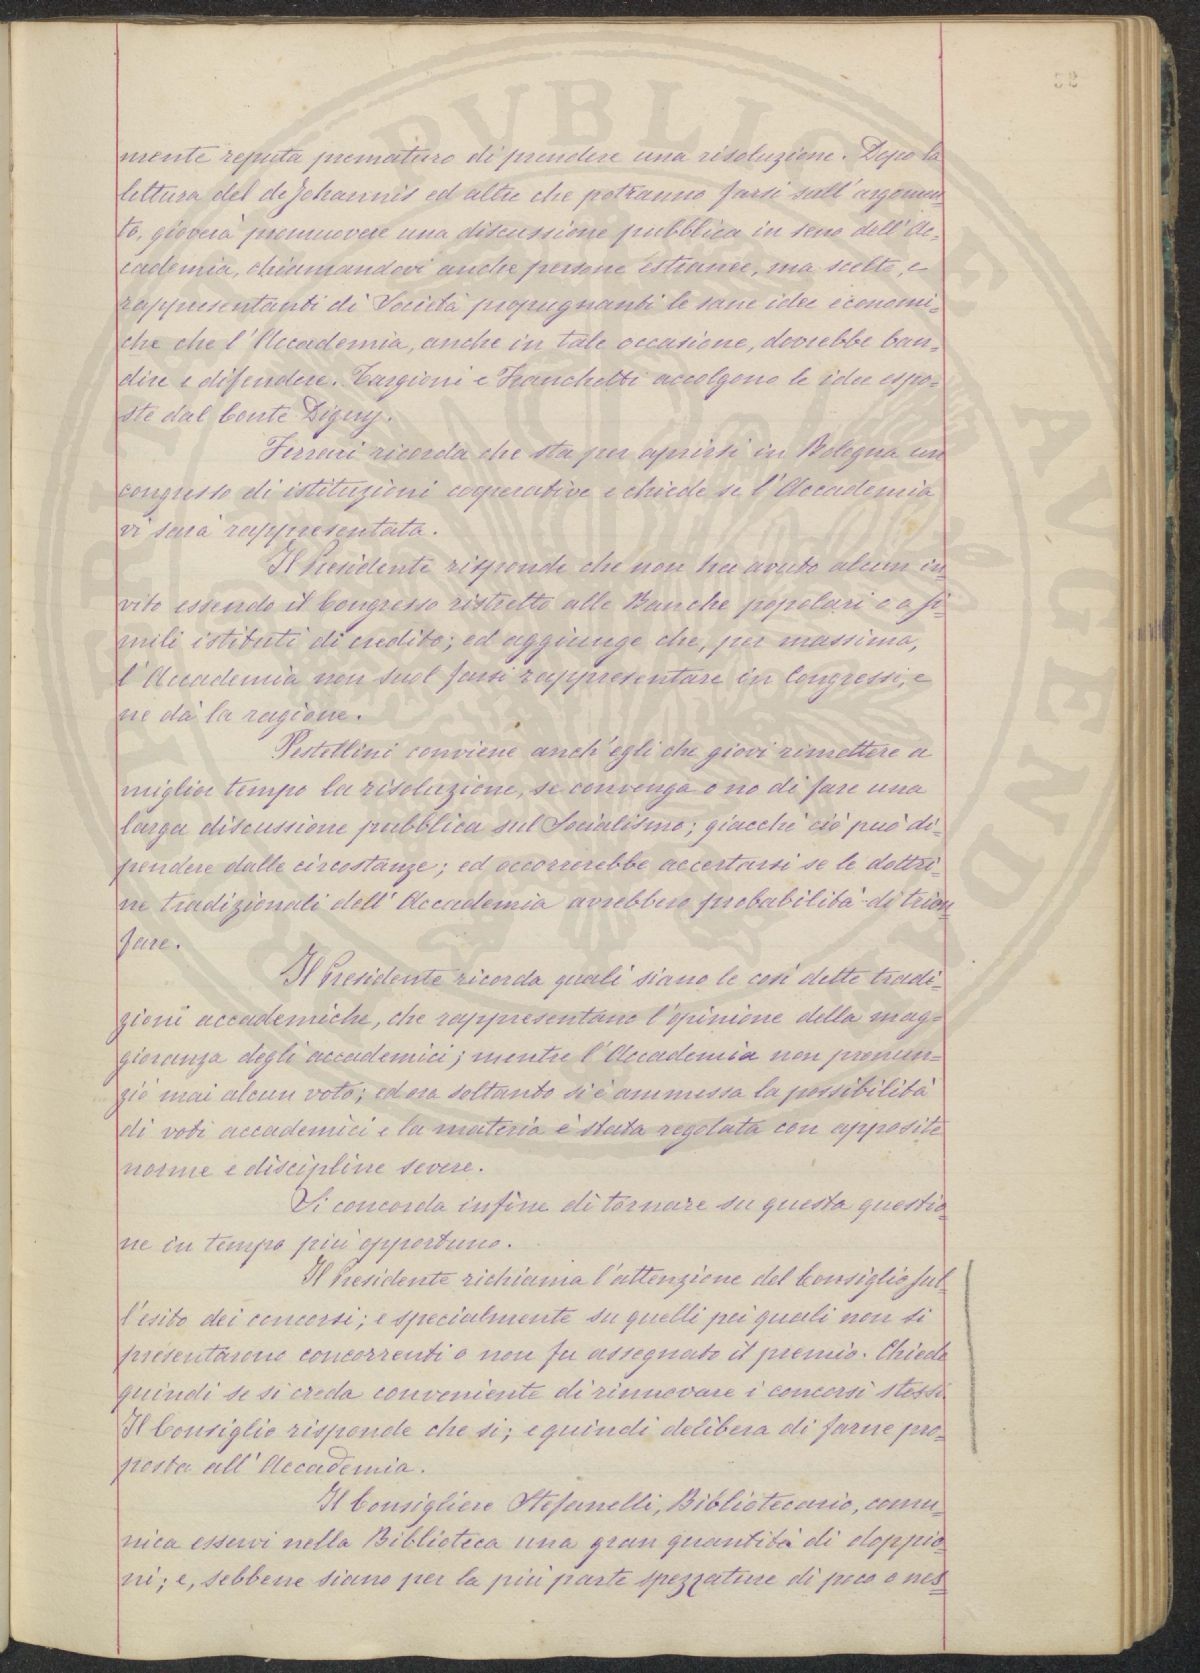 mente reputa prematuro di prendere una risoluzione. Dopo la
lettura del de Johannis ed altre che potranno farsi sull'argomen=
to, gioverà promuovere una discussione pubblica in seno dell'Ac=
cademia, chiamandovi anche persone estranee, ma scelte, e
rappresentanti di Società propugnanti le sane idee economi=
che che l'Accademia, anche in tale occasione, dovrebbe ban=
dire e difendere. Targioni e Franchetti accolgono le idee espo=
ste dal Conte Digny.
Ferrari ricorda che sta per aprirsi in Bologna un
congresso di istituzioni cooperative e chiede se l'Accademia
vi sarà rappresentata.
Il Presidente risponde che non ha avuto alcun in=
vito essendo il Congresso ristretto alle Banche popolari e a si=
mili istituti di credito; ed aggiunge che, per massima,
l'Accademia non suol farsi rappresentare in Congressi, e
ne dà la ragione.
Pestellini conviene anch'egli che giovi rimettere a
miglior tempo la risoluzione, se convenga o no di fare una
larga discussione pubblica sul Socialismo; giacchè ciò può di=
pendere dalle circostanze; ed occorrerebbe accertarsi se le dottri=
ne tradizionali dell'Accademia avrebbero probabilità di trion=
fare.
Il Presidente ricorda quali siano le così dette tradi=
zioni accademiche, che rappresentano l'opinione della mag=
gioranza degli accademici; mentre l'Accademia non pronun=
ziò mai alcun voto; ed ora soltanto si è ammessa la possibilità
di voti accademici e la materia è stata regolata con apposite
norme e discipline severe.
Si concorda infine di tornare su questa questio=
ne in tempo più opportuno.
Il Presidente richiama l'attenzione del Consiglio sul=
l'esito dei concorsi; e specialmente su quelli pei quali non si
presentarono concorrenti o non fu assegnato il premio. Chiede
quindi se si creda conveniente di rinnovare i concorsi stessi.
Il Consiglio risponde che si; e quindi delibera di farne pro=
posta all'Accademia.
Il Consigliere Stefanelli, Bibliotecario, comu=
nica esservi nella Biblioteca una gran quantità di doppio=
ni; e, sebbene siano per la più parte spezzature di poco o nes=